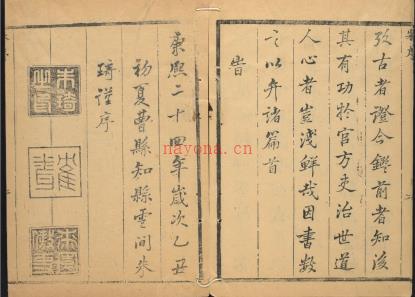 攷古者證今鑑前者知後
其有功於官方吏治世道
人心者豈淺鮮哉因書數
言以弁諸篇首
旹
康熙二十四年歲次乙丑
初夏曹縣知縣雲間朱
琦謹序
朱琦之印
nayona.cn